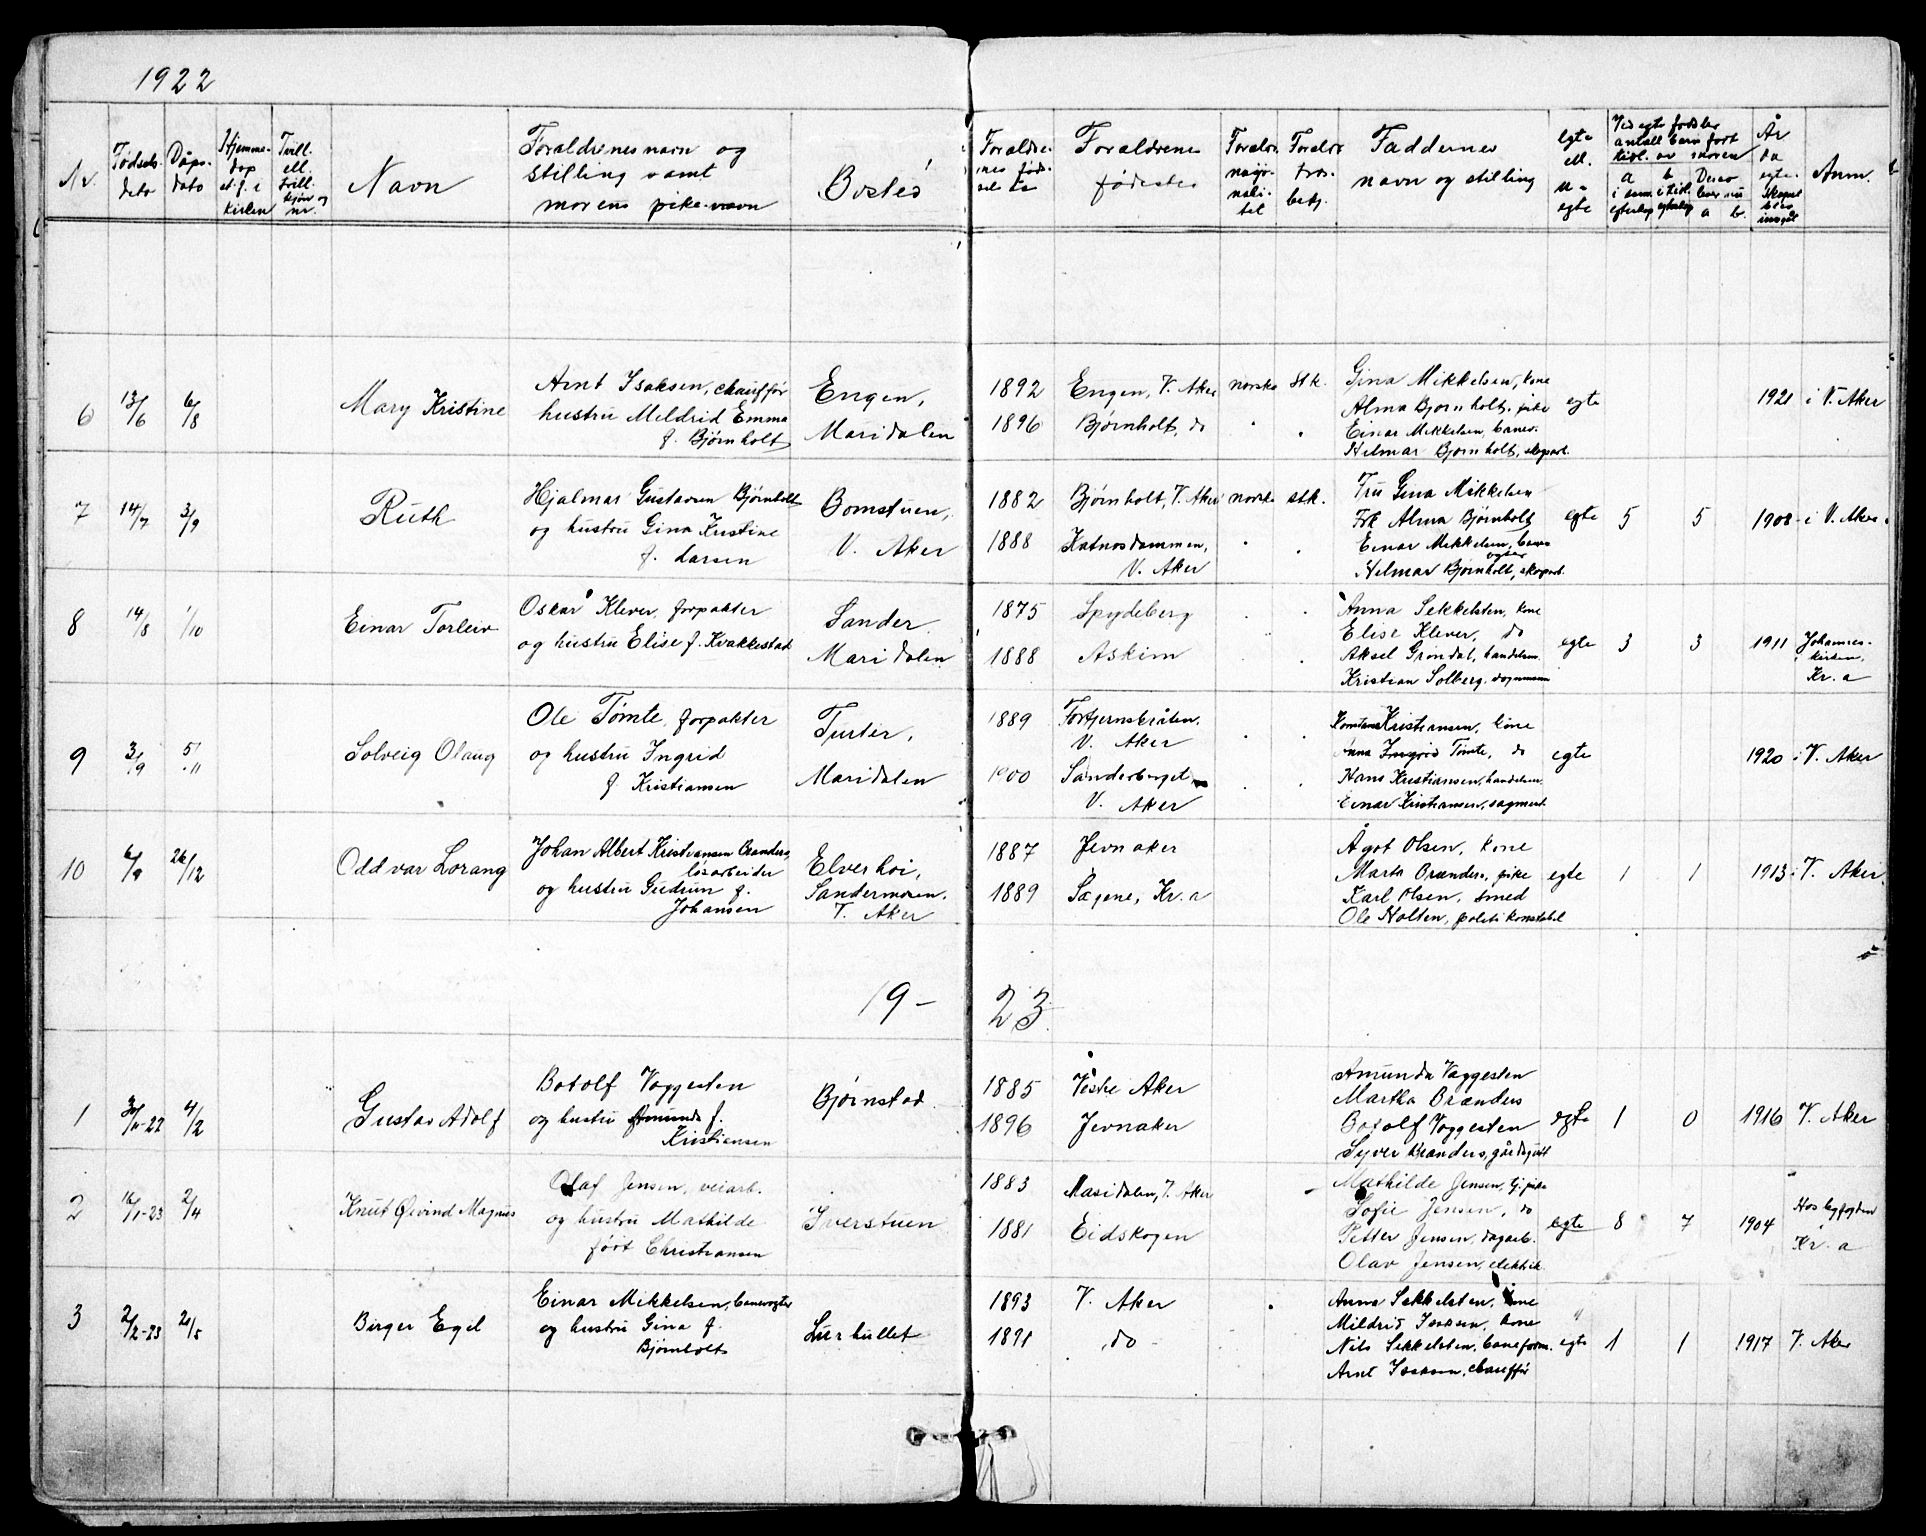 1922
Nr.
Fødsels-
dato
Dåps-
dato
Hjemme-
døp
st. f. i
kirken
Tvill.
ell.
trill.
kjøn og
nr.
Navn
Forældrenes navn og
stilling samt
morens pike-navn
Bosted
Forældre-
nes føds-
els år
Forældrenes
fødested
Foreldr.
nasjo-
nali-
tet
Foreldr.
tros-
bekj.
Faddernes
navn og stilling
egte
ell.
u-
egte
Ved egte fødsler
antall barn født
tidl. av moren
a b Derav
i sam i tidl. lever nu
egteskap a b.
År
da
egte-
skapet
blev
inngåt
Anm.
6
13/6
6/8
Mary Kristine
Arnt Isaksen, chauffør
hustru Mildrid Emma
f. Bjørnholt
Engen,
Maridalen
1892
1896
Engen, V. Aker
Bjørnholt, do
norske
Stk.
Gina Mikkelsen, kone
Alma Bjørnholt, pike
Einar Mikkelsen, banev.
Hilmar Bjørnholt, skogarb.
egte
1921
i V. Aker
7
14/7
3/9
Ruth
Hjalmar Gustavsen Bjørnholt
og hustru Gina Kristine
f. Larsen
Bomstuen,
V. Aker
1882
1888
Bjørnholt, V. Aker
Katnosdammen,
V. Aker
norske
stk.
Fru Gina Mikkelsen
Frk Alma Bjørnholt
Einar Mikkelsen, bane-
vogter
Hilmar Bjørnholt, skogarb.
egte
5
5
1908
i V. Aker.
8
14/8
1/10
Einar Torleiv
Oskar Klever, forpakter
og hustru Elise f. Kvakkestad
Sander
Maridalen
1875
1888
Spydeberg
Askim
Anna Sekkelsten, kone
Elise Klever, do
Aksel Grøndal, handelsm.
Kristian Solberg,
egte
3
3
1911
Johannes-
kirken,
Kr.a
9
3/9
5/11
Solveig Olaug
Ole Tømte, forpakter
og hustru Ingrid
f. Kristiansen
Turter,
Maridalen
1889
1900
V. Aker
Sanderberget
V. Aker
Kristiansen, kone
Tømte, do
Hans Kristiansen, handelsm.
Einar Kristiansen, sagmest.
egte
1920
i V. Aker
10
6/9
26/12
Oddvar Lorang
Johan Albert Kristiansen Brænders,
løsarbeider
og hustru Gudrun f.
Johansen
Elverhøi,
Sandermosen.
V. Aker
1887
1889
Jevnaker
Sagene, Kr.a
Ågot Olsen, kone
Marta Brænders, pike
Karl Olsen, smed
Ole Holten, politikonstabel
egte
1
1
1913
i V. Aker.
19-23
1
30/11-22
4/2
Gustav Adolf
Botolf Vaggesten
og hustru Amunda f.
Kristiansen
Bjørnstad
1885
1896
Vestre Aker
Jevnaker
Amunda Vaggesten
Martha Brænders
Botolf Vaggesten
Syver Brænders, gårdsgutt
egte
1
0
1916
V. Aker
2
16/1-23
2/4
Knut Øivind Magnus
Olaf Jensen, veiarb.
og hustru Mathilde
født Christiansen
Iverstuen
1883
1881
Maridalen, V. Aker
Eidskogen
Mathilde Jensen, tj.pike
Sofie Jensen, do
Petter Jensen, dagarb.
Olav Jensen, elektrik.
egte
8
7
1904
Hos byfogden
Kr.a
3
2/2-23
21/5
Birger Egil
Einar Mikkelsen, banevogter
og hustru Gina f.
Bjørnholt
Lurhullet
1893
1891
V. Aker
do
Anna Sekkelsten, kone
Mildrid Isaksen, kone
Nils Sekkelsten, baneform.
Arnt Isaksen, chauffør
egte
1
1
1917
V. Aker